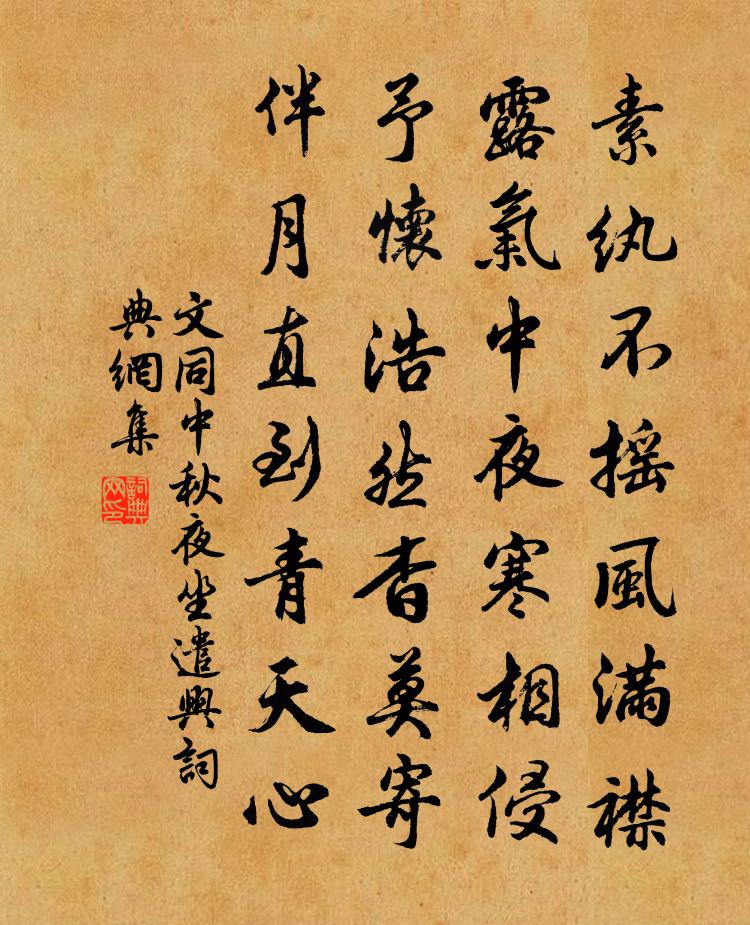 素纨不摇風滿襟
露氣中夜寒相侵
予懷浩然杳莫寄
伴月直到青天心
文同中秋夜坐遣興詞
典網集
詞典
网印